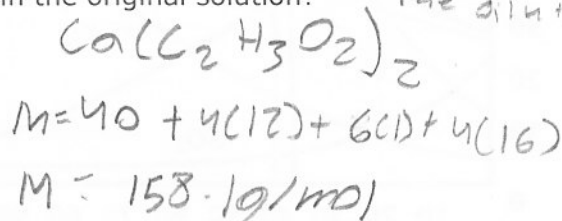 in the original solution? The dilut
Ca(C₂H₃O₂)₂
M=40 + 4(12)+ 6(1)+ 4(16)
M = 158.1g/mol